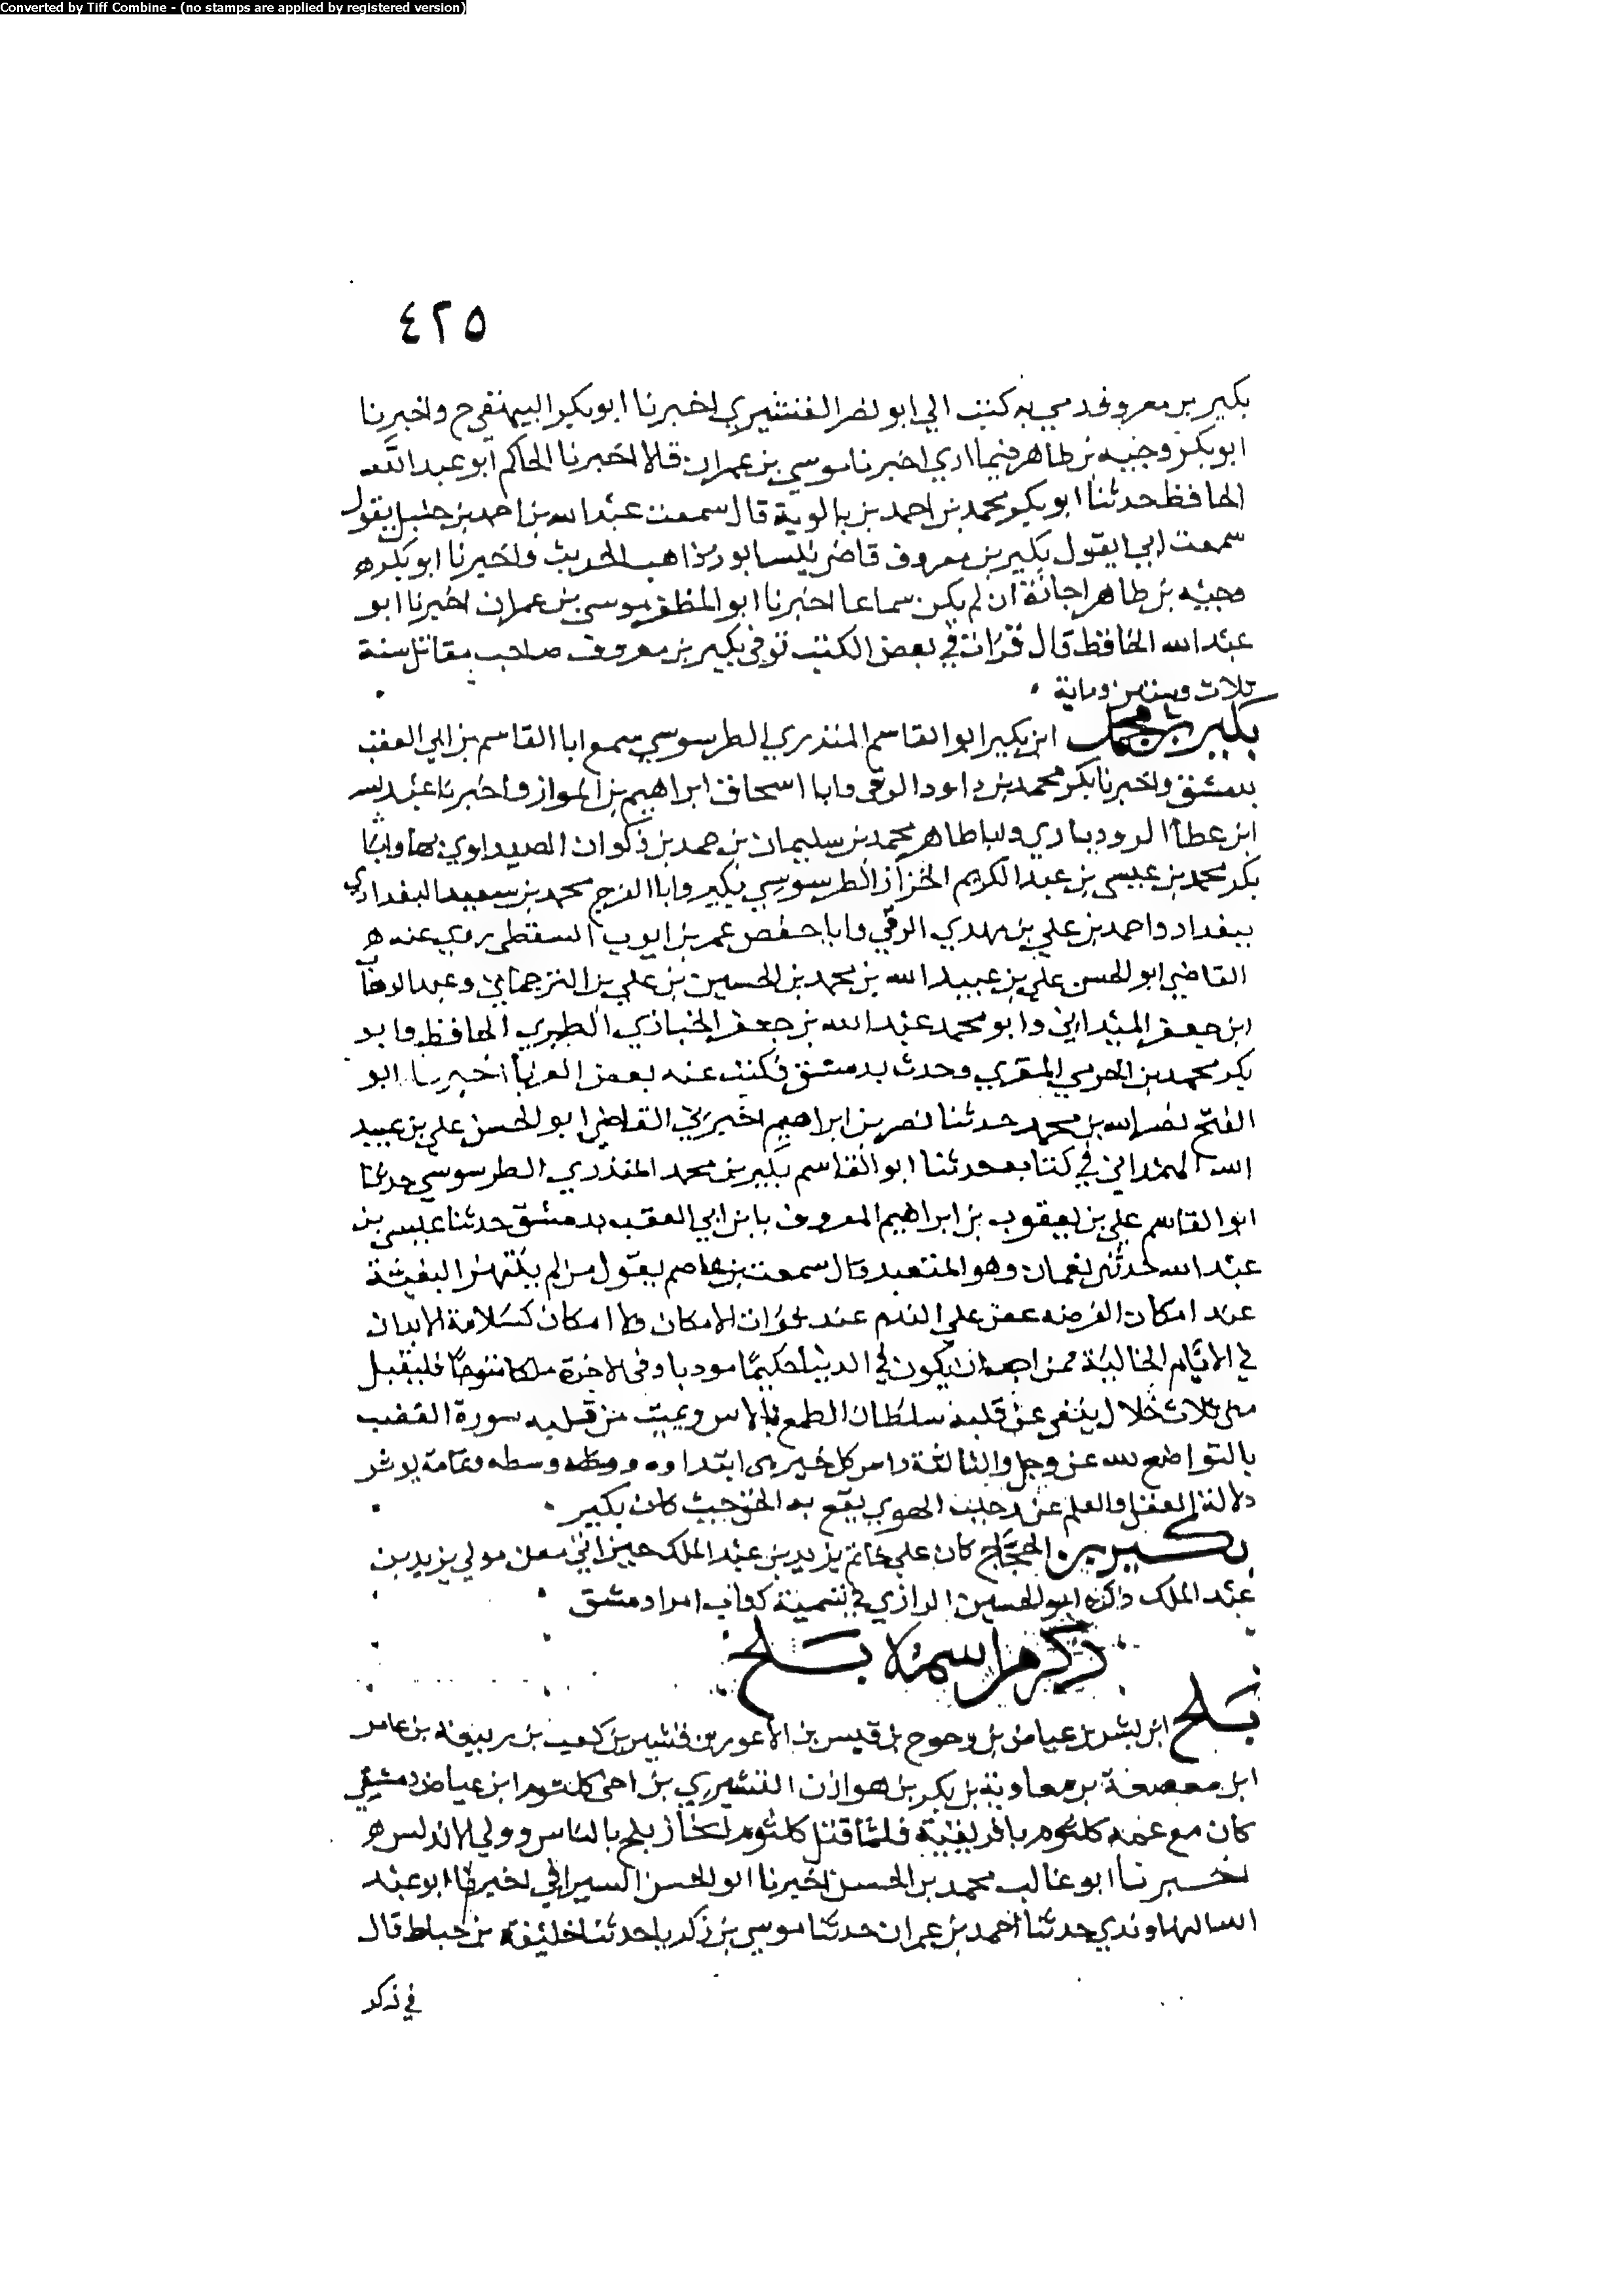 Converted by Tiff Combine - (no stamps are applied by registered version)
٤٢٥
بكير بن معروف كتب الي ابو نصر القشيري اخبرنا ابو بكر البيهقي ح واخبرنا
ابو بكر وجيه بن طاهر فيما اري اخبرنا موسي بن عمران قالا اخبرنا الحاكم ابو عبد الله
الحافظ حدثنا ابو بكر محمد بن احمد بن بالوية قال سمعت عبد الله بن احمد بن حنبل يقول
سمعت ابي يقول بكير بن معروف قاضي نيسابور ذاهب الحديث واخبرنا ابو بكر ه
وجيه بن طاهر اجازة ان لم يكن سماعا اخبرنا ابو المظفر موسي بن عمران اخبرنا ابو
عبد الله الحافظ قال قرات في بعض الكتب توفي بكير بن معروف صاحب مقاتل سنة
ثلاث وستين وماية
بكير بن محمد ابن بكير ابو القاسم المنذري الطرسوسي سمع ابا القاسم بن ابي العقب
بدمشق واخبرنا بكر محمد بن داود الرقي وابا اسحاق ابراهيم بن المواز واخبرنا عبد لله
ابن عطا الروذباري وابا طاهر محمد بن سليمان بن حمد بن ذكوان الصيداوي بها وابا
بكر محمد بن عيسي بن عبد الكريم الخزاز الطرسوسي بكير وابا الفرج محمد بن سعيد البغدادي
ببغداد واحمد بن علي بن مهدي الرقي وابا حفص عمر بن ايوب السقطي روي عنه ه
القاضي ابو الحسن علي بن عبيد الله بن محمد بن الحسين بن علي بن الترجماني وعبد الوهاب
ابن جعفر الميداني وابو محمد عبد الله بن جعفر الخبازي الطبري الحافظ وابو
بكر محمد بن الحرمي المقري وحدث بدمشق فكتب عنه بعض الغربا اخبرنا ابو
الفتح نصر الله بن محمد حدثنا نصر بن ابراهيم اخبرني القاضي ابو الحسن علي بن عبيد
الله الهمداني في كتابه حدثنا ابو القاسم بكير بن محمد المنذري الطرسوسي حدثنا
ابو القاسم علي بن يعقوب بن ابراهيم المعروف بابن ابي العقب بدمشق حدثنا عيسي بن
عبد الله حدثني نعمان وهو المتعبد قال سمعت بن عاصم يقول من لم ينتهز البغيثة
عند امكان الفرصه عض علي الندم عند فوات الامكان ولا امكان كسلامة الابدان
في الايام الخالية فمن احب ان يكون في الدنيا حكيما مودبا وفي الاخرة ملكا متوجا فليقبل
مني ثلاث خلال ينفي عن قلبه سلطان الطمع بالاس ويميت من قلبه سورة الغضب
بالتواضع لله عز وجل والثالثة راس كل خير في ابتداوه ووسطه وتمامه يوثر
دلالة العقل والعلم عند جليب الهوي يقع به الحق حيث كان بكير
بكير بن الحجاج كان علي خاتم يزيد بن عبد الملك مولي يزيد بن
عبد الملك ذكره ابو الحسين الرازي في تسمية كتاب امرا دمشق
ذكر من اسمه بلح
بلح ابن بشر بن عياض بن وحوح بن قيس بن الاعور بن قشير بن كعب بن ربيعة بن عامر
ابن صعصعة بن معاوية بن بكر بن هوازن القشيري بن اخي كلثوم ابن عياض دمشقي
كان مع عمه كلثوم بافريقية فلما قتل كلثوم انحاز بلج بالناس وولي الاندلس ه
اخبرنا ابو غالب محمد بن الحسن اخبرنا ابو الحسن السيرافي اخبرنا ابو عبد
الله النهاوندي حدثنا احمد بن عمران حدثنا موسي بن زكريا حدثنا خليفة بن خياط قال
في ذكر